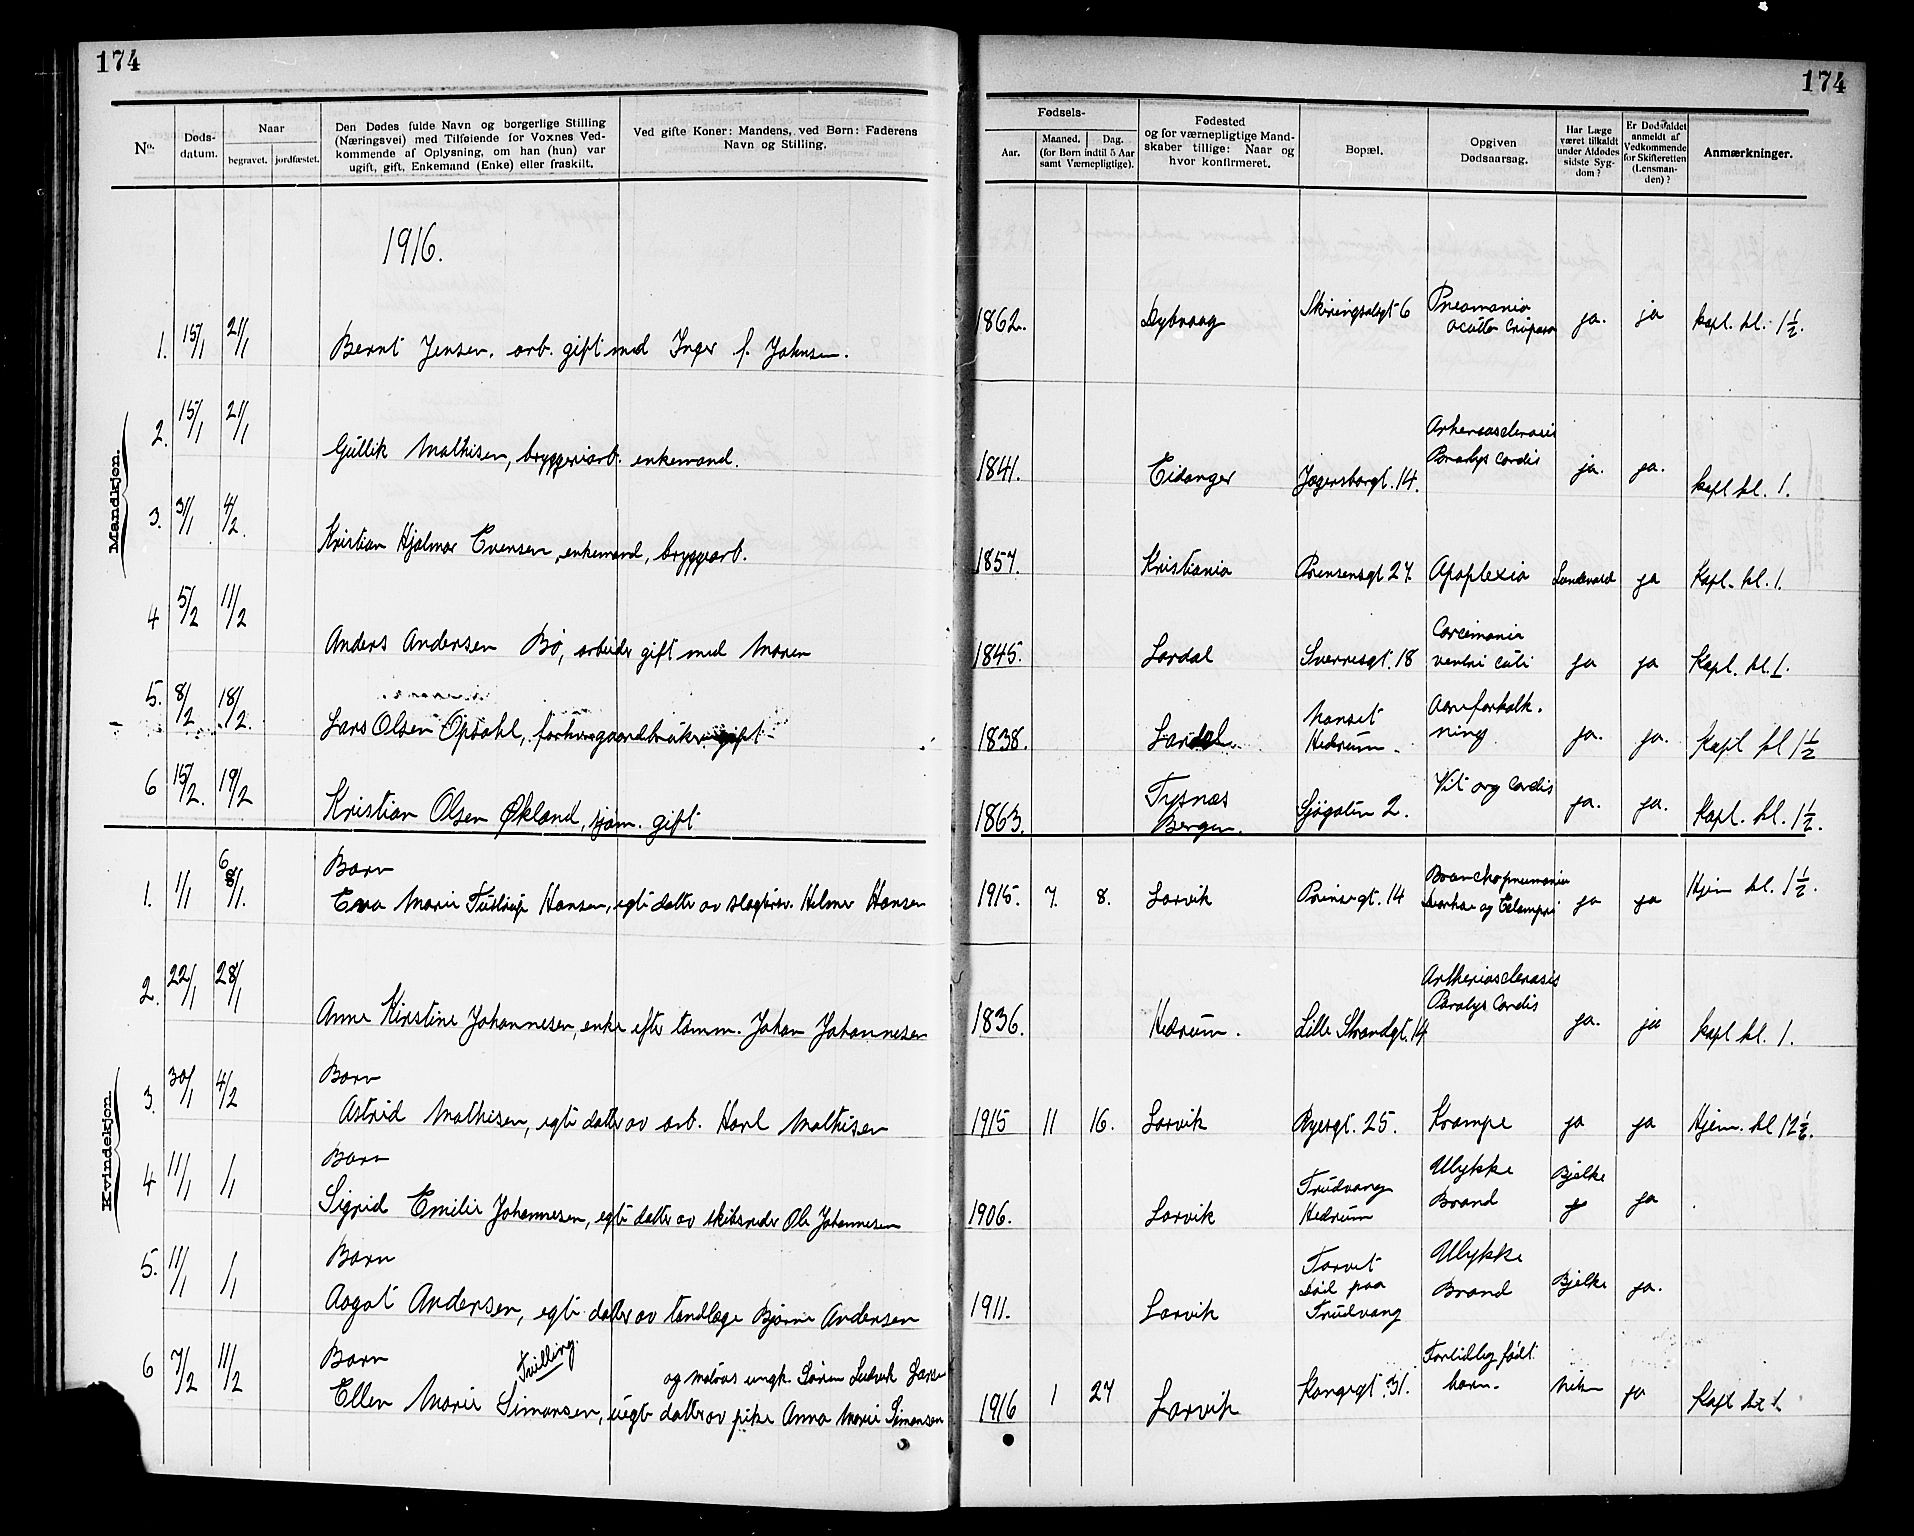 174
174
No.
Døds-
datum.
Naar
begravet.
jordfæstet.
Den Dødes fulde Navn og borgerlige Stilling
(Næringsvei) med Tilføiende for Voxnes Ved-
kommende af Oplysning, om han (hun) var
ugift, gift, Enkemand (Enke) eller fraskilt.
Ved gifte Koner: Mandens, ved Børn: Faderens
Navn og Stilling.
Fødsels-
Aar.
Maaned.
Dag.
(for Børn indtil 5 Aar
samt Værnepligtige).
Fødested
og for værnepligtige Mand-
skaber tillige: Naar og
hvor konfirmeret.
Bopæl.
Opgiven
Dødsaarsag.
Har Læge
været tilkaldt
under Afdødes
sidste Syg-
dom?
Er Dødsfaldet
anmeldt af
Vedkommende
for Skifteretten
(Lensman-
den)?
Anmærkninger.
1916.
Mandkjøn.
1. 15/1 21/1 Bernt Jensen. arb. gift med Inger f. Johnsen. 1862. Dybvaag Skiringsalsgt 6 Pneomonia
acutta crúposa ja. ja kapl. kl. 1 1/2.
2. 15/1 21/1 Gúllik Mathisen, bryggeriarb. enkemand. 1841. Eidanger Jegersborgt. 14. Artheriosclerosis
Paralys Cordis ja. ja. kapl kl. 1.
3. 31/1 4/2. Kristian Hjalmar Evensen, enkemand, bryggearb. 1857. Kristiania Prinsensgt 27. Apoplexia ja Kapl. kl. 1.
4 5/2 11/2 Anders Andersen Bø, arbeider gift med Maren 1845. Lardal Sverresgt. 18 Carcimonia
ventri cúli ja ja Kapl. kl. 1.
5. 8/2 18/2. Lars Olsen Opdahl, forhv. gaardbrúker gift 1838. Lardal. Nanset
Hedrúm. Aareforkalk.
ning. ja. ja. Kapl kl 1 1/2
6 15/2. 19/2 Kristian Olsen Økland, sjøm. gift 1863. Tysnes
Bergen. Sjøgaten 2. Vit org cordis ja. ja. Kapl. kl. 1 1/2.
Kvindekjøn.
1. 1/1 6/1. Barn
Eva Marie Tústrúp Hansen, egte datter av slagtersv. Helmer Hansen 1915. 7. 8. Larvik Prinsegt. 14 Bronchopneumonia
Diarhoe og Eclampsi ja ja Hjem kl. 1 1/2.
2. 22/1 28/1 Anne Kirstine Johannesen, enke efter tømm. Johan Johannesen 1836. Hedrúm. Lille Strandgt. 14 Artheriosclerosis
Paralys Cordis ja. ja kapl kl. 1.
3. 30/1 4/2 Barn
Astrid Mathisen, egte datter av arb. Karl Mathisen 1915 11 16. Larvik Byesgt. 25. Krampe ja ja Hjem. kl 12 1/2.
4 11/1 /1 Barn
Sigrid Emilie Johannesen, egte datter av skibsreder Ole Johannesen 1906. Larvik Trúdvang
Hedrúm Ulykke
Brand Bjelke ja
5. 11/1 /1 Barn
Aagot Andersen, egte datter av tandlæge Bjarne Andersen 1911. Larvik Torvet
død paa
Trúdvang Ulykke
Brand Bjelke ja.
6 7/2 11/2 Barn
Tvilling
og matros ungk. Søren Ludvik Larsen
Ellen Marie Simonsen, uegte datter av pike Anna Marie Simonsen 1916 1 27 Larvik Kongegt. 31. Fortidlig født
barn. Nei ja Kapl kl 1